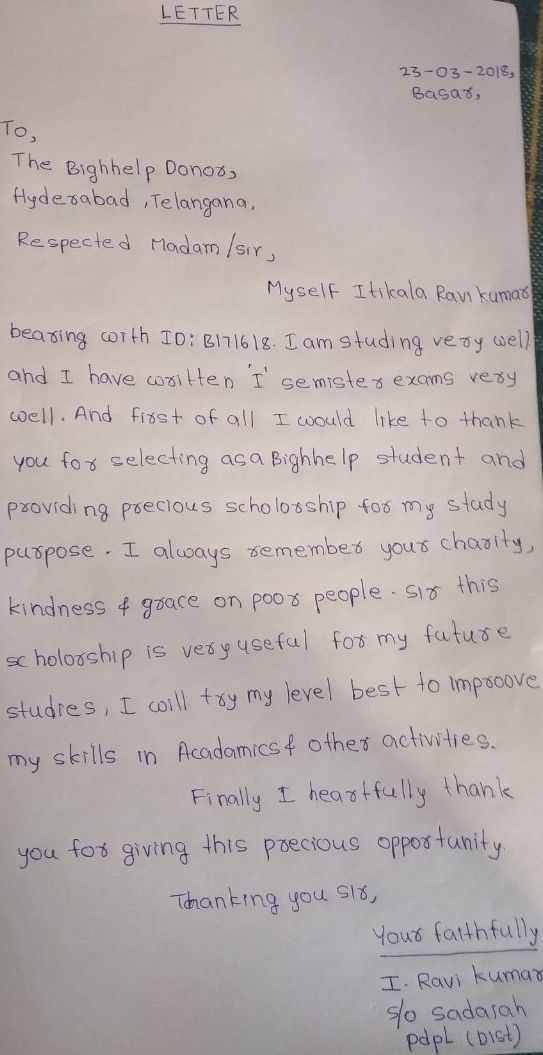 LETTER
23-03-2018,
Basar,
To,
The Bighhelp Donor,
Hyderabad, Telangana.
Respected Madam/sir,
Myself Itikala Ravi kumar
bearing with ID: B171618. I am studing very well
and I have written 'I' semister exams very
well. And first of all I would like to thank
you for selecting as a Bighhelp student and
providing precious scholorship for my study
purpose. I always remember your charity,
kindness & grace on poor people. sir this
scholorship is very useful for my future
studies, I will try my level best to improove
my skills in Acadamics & other activities.
Finally I heartfully thank
you for giving this precious opportunity.
Thanking you sir,
Your faithfully
I. Ravi kumar
S/o Sadaiah
pdpL (Dist)